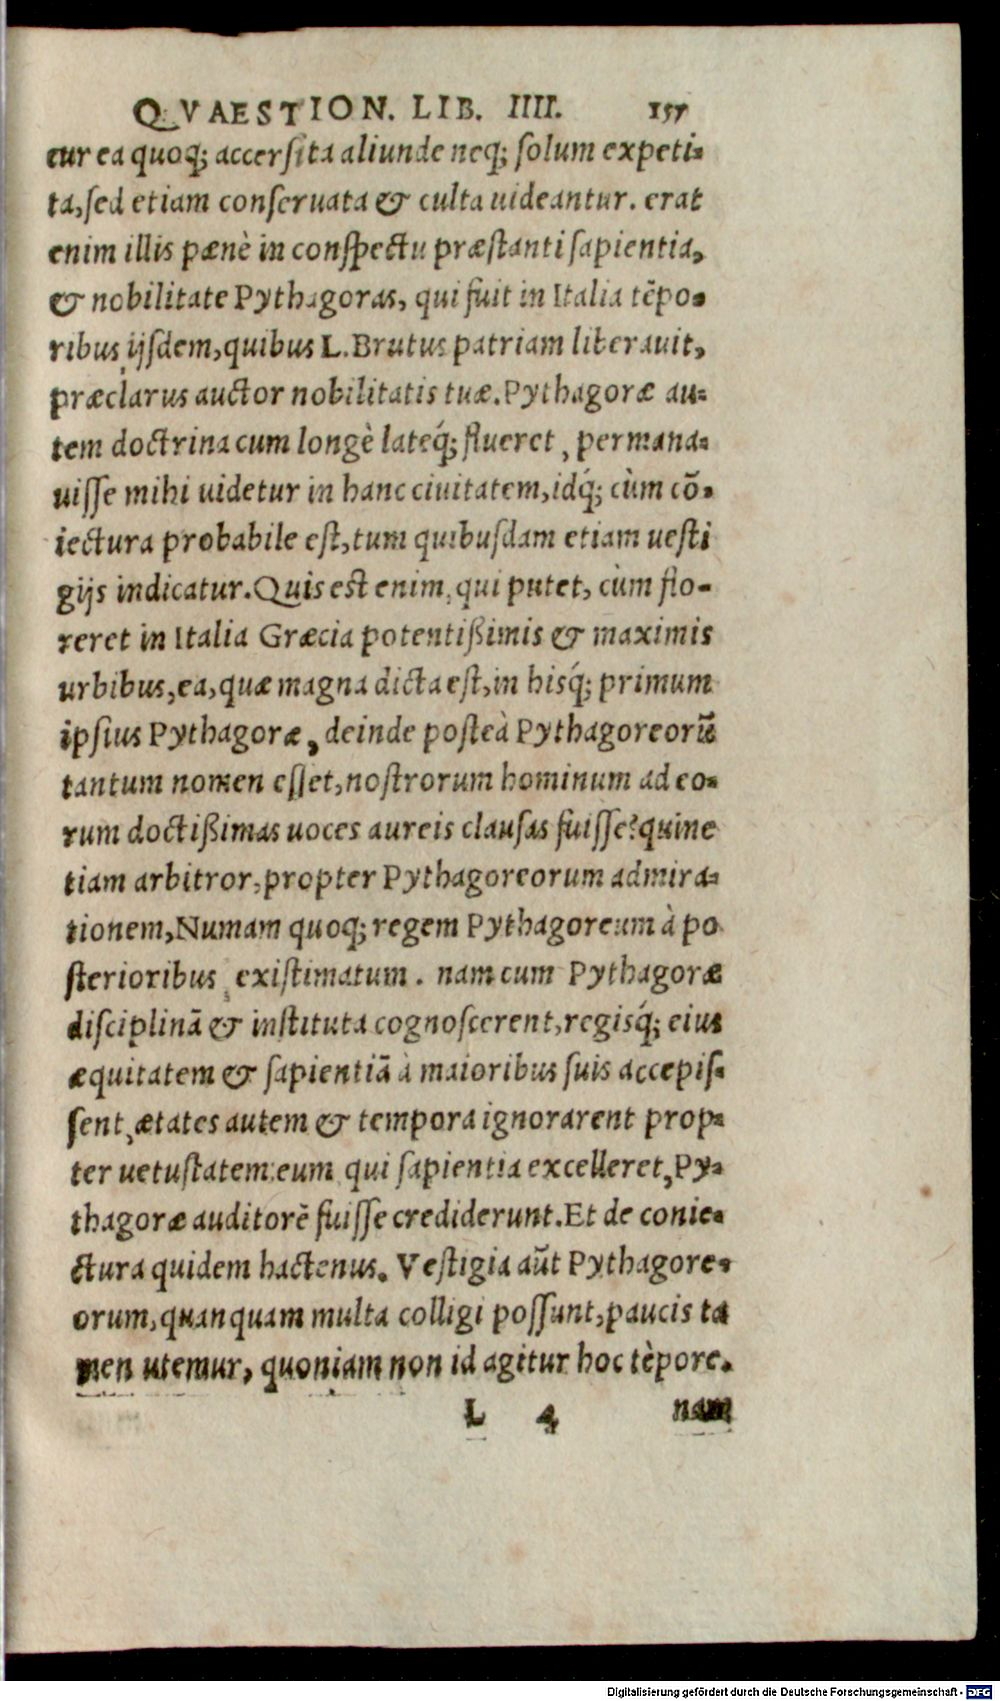 QVAESTION. LIB. IIII. 157
tur ea quoq; accersita aliunde neq; solum expeti-
ta, sed etiam conseruata & culta uideantur. erat
enim illis pænè in conspectu præstanti sapientia,
& nobilitate Pythagoras, qui fuit in Italia tẽpo-
ribus ijsdem, quibus L. Brutus patriam liberauit,
præclarus auctor nobilitatis tuæ. Pythagoræ au-
tem doctrina cum longè lateq́; flueret, permana-
uisse mihi uidetur in hanc ciuitatem, idq́; cùm cõ-
iectura probabile est, tum quibusdam etiam uesti
gijs indicatur. Quis est enim, qui putet, cùm flo-
reret in Italia Græcia potentißimis & maximis
urbibus, ea, quæ magna dicta est, in hisq́; primum
ipsius Pythagoræ, deinde posteà Pythagoreorũ
tantum nomen esset, nostrorum hominum ad eo-
rum doctißimas uoces aureis clausas fuisse? quine
tiam arbitror, propter Pythagoreorum admira-
tionem, Numam quoq; regem Pythagoreum à po
sterioribus existimatum. nam cum Pythagoræ
disciplinã & instituta cognoscerent, regisq́; eius
æquitatem & sapientiã à maioribus suis accepis-
sent, ætates autem & tempora ignorarent prop-
ter uetustatem: eum qui sapientia excelleret, Py-
thagoræ auditorẽ fuisse crediderunt. Et de conie-
ctura quidem hactenus. Vestigia aũt Pythagore-
orum, quanquam multa colligi possunt, paucis ta
men utemur, quoniam non id agitur hoc tèpore.
L 4 nam
Digitalisierung gefördert durch die Deutsche Forschungsgemeinschaft - DFG